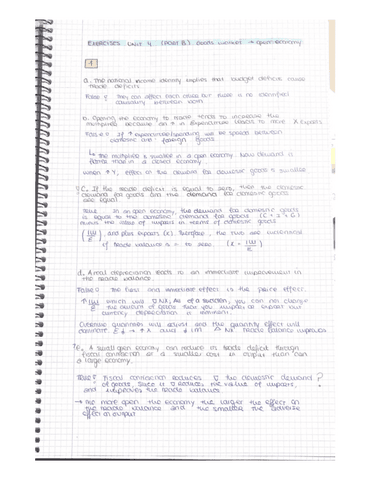 EXERCISES Unit 4 (PART B) Goods market → open economy
1
a. The national income identity implies that budget deficit cause trade deficits
False: They can affect each other but there is no
b. Opening the economy to trade tends to increase the
multiplier because an ↑ in expenditure leads to more X Exports
False: If ↑ expenditure/spending will be spread between
domestic and foreign goods
↳ The multiplier is smaller in a open economy. Now demand is
than in a closed economy
when ↑Y, effect on the demand for domestic goods is smaller
c. If the trade deficit is equal to zero, then the domestic
demand for goods and the demand for domestic goods
are equal
TRUE In an open economy, the demand for domestic goods
is equal to the domestic demand for goods (C + I + G)
minus the value of imports in terms of domestic goods
(IM/E), and plus exports (X). Therefore, the two are
if trade balance is = to zero. (X = IM/E)
d. A real depreciation leads to an immediate improvement in
the trade balance.
False: The first and immediate effect is the price effect.
which will ↓ NX. As of a sudden, you can not change
the amount of goods that you import or export but
currency depreciation is immediate.
quantities will adjust and the quantity effect will
dominate. E↓ → ↑X and ↓IM ↑NX trade balance improves
e. A small open economy can reduce its trade deficit through
fiscal contraction at a smaller cost in output than can
a large economy.
TRUE: Fiscal contraction reduces the domestic demand ?
of goods, since it reduces the value of imports,
and improves the trade balance
→ The more open the economy the larger the effect on
the trade balance and the smaller the adverse
effect on output